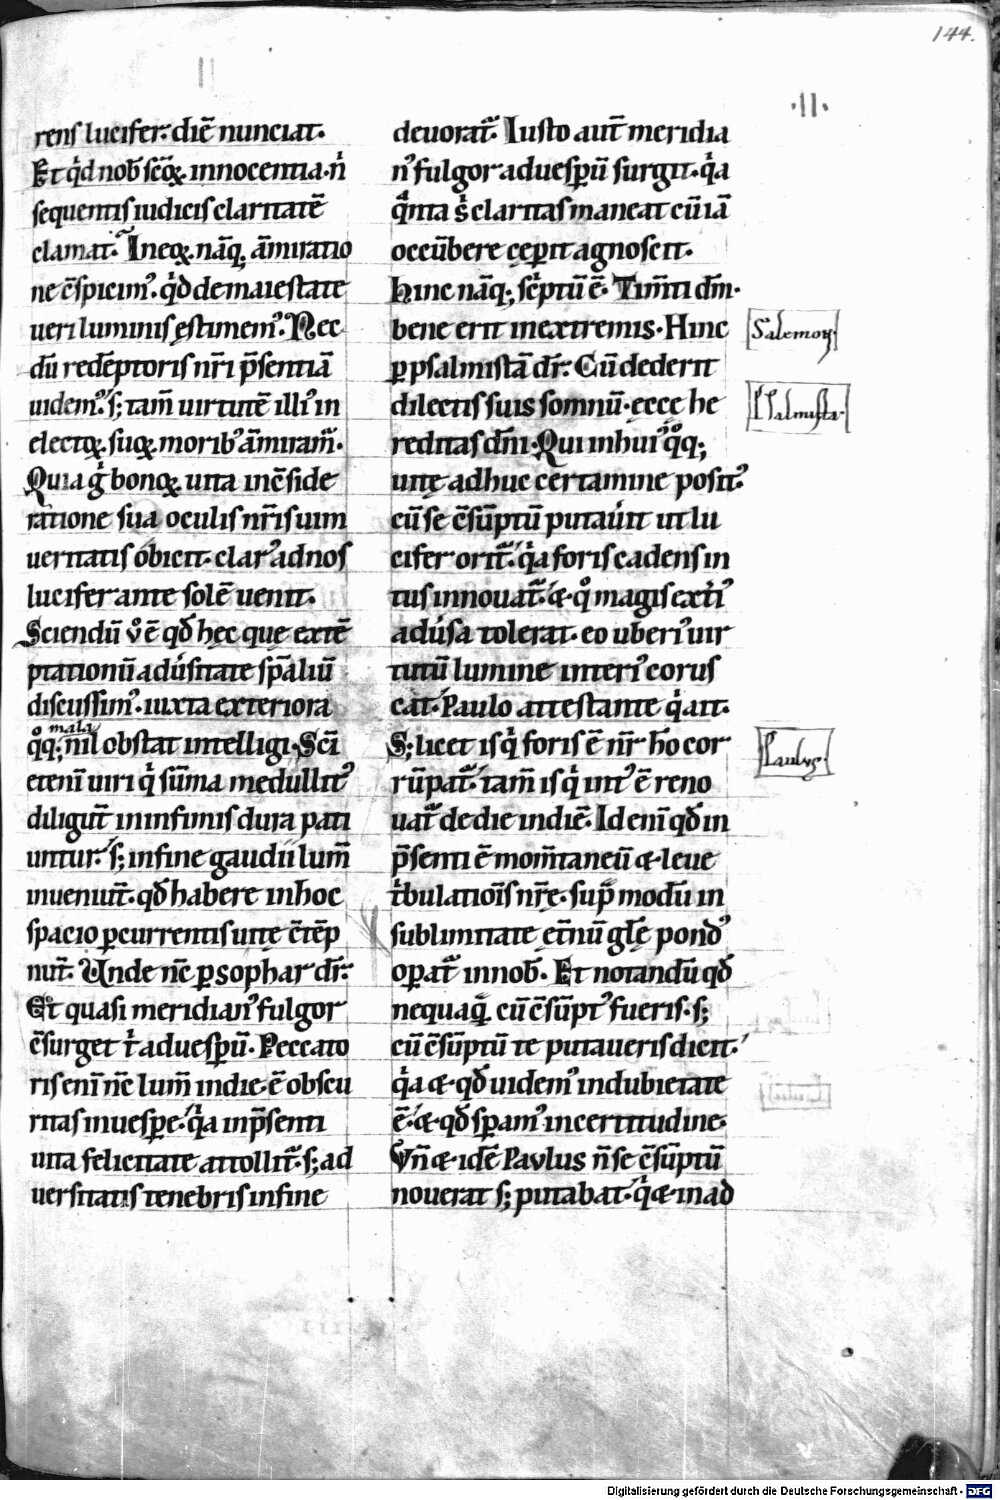 144.
·II·
renſ lucifer: diē nunciat.
Et qͥd nob̄ ſcōꝝ innocentia·nͥ
ſequentiſ iudiciſ claritatē
clamat. In eoꝝ nāq, āmiratio
ne c̄ſpicimꝰ. qͥd de maieſtate
ueri luminiſ ęſtimemꝰ. Nec
dū redēptoriſ nr̄i p̄ſentiā
uidemꝰ ſ; tam̄ uirtutē illiꝰ in
electoꝝ ſuoꝝ moribꝰ āmiramᷣ.
Quia gͥ bonoꝝ uita in c̄ſide
ratione ſua oculiſ nr̄iſ uim
ueritatiſ obicit. clarꝰ ad noſ
lucifer ante ſolē uenit.
Sciendū v̊ ē qd̄ hęc que ex tē
ptationū aduſ̄itate ſp̄aliū
diſcuſſimꝰ. iuxta exteriora
mala
qͦq; nil obſtat intelligi. Sc̄i
eteni᷑ uiri qͥ ſūma medullitꝰ
diligūt in infimiſ dura pati
untur. ſ; in fine gaudii lum̄
inueniūt. qd̄ habere in hoc
ſpacio ꝑcurrentiſ uitę c̄tēp
nūt. Unde nc̄ ꝑ sophar dr̄:
Et quaſi meridianꝰ fulgor
c̄ſurget tͥ ad ueſꝑū. Peccato
riſ eni᷑ nc̄ lum̄ in die ē obſcu
ritas in ueſꝑe. qͥa in p̄ſenti
uita felicitate attollitᷣ. ſ; ad
uerſitatiſ tenebriſ in fine
deuoratᷣ. Iuſto aut̄ meridia
nꝰ fulgor ad ueſꝑū ſurgit. qͥa
qͣnta sͥ claritaſ maneat cū iā
occūbere cępit agnoſcit.
Hinc nāq; ſcͥptū ē. Tim̄ti dm̄.
bene erit in extremis. Hinc
ꝑ pſalmiſtā dr̄: Cū dederit
dilectiſ ſuis ſomnū. ecce he
reditaſ dm̄. Qui in huiꝰ qͦq;
uitę adhuc certamine poſitꝰ
cū ſe c̄ſūptū putau̾it ut lu
cifer oritᷣ. qͥa foriſ cadenſ in
tuſ innouatᷣ. & qͦ magiſ extͥꝰ
adu̾ſa tolerat. eo uberiꝰ uir
tutū lumine interiꝰ coruſ
cat. Paulo atteſtante qͥ ait.
S; licet iſ qͥ foriſ ē nr̄ hō cor
rūpatᷣ. tam̄ iſ qͥ intꝰ ē reno
uatᷣ de die in diē. Id eni᷑ qd̄ in
p̄ſenti ē mom̄taneū & leue
tͥbulatiōiſ nr̄ę. ſup̄ modū in
ſublimitate ęt̄nū gl̄ę pondꝰ
oꝑatᷣ in nob̄. Et notandū qd̄
nequaqͣ cū c̄ſūptꝰ fueriſ. ſ;
cū c̄ſūptū te putaueriſ dicit.
qͥa & qd̄ uidemꝰ in dubietate
ē. & qd̄ ſꝑamꝰ in certitudine.
Vn̄ & idē Pavlus n̄ ſe c̄ſūptū
nouerat ſ; putabat. qͥ & in ad
Salemon.
Pſalmiſta.
Paulus.
Digitalisierung gefördert durch die Deutsche Forschungsgemeinschaft - DFG